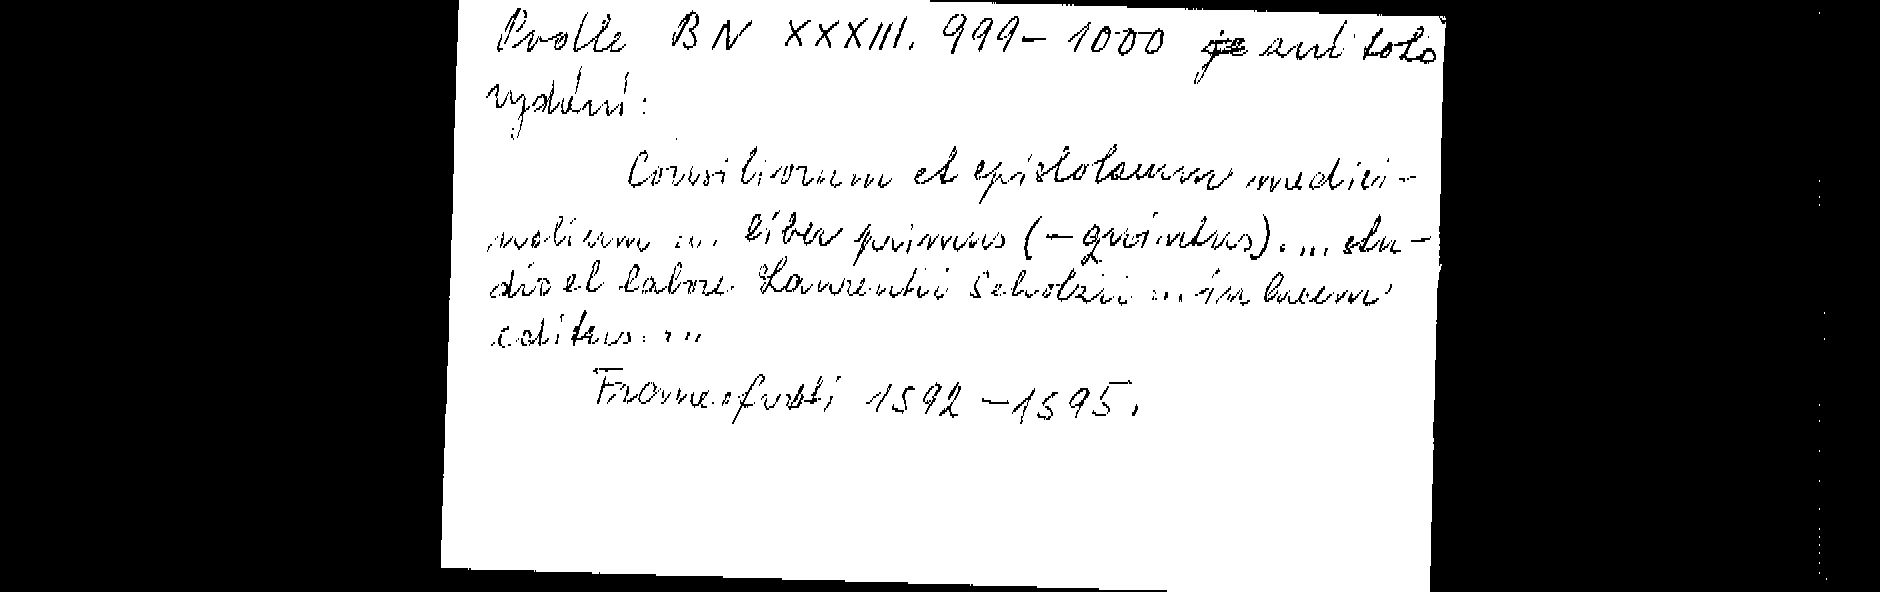 Podle BN XXXIII. 999-1000 je ant. toto
vydání:
Consiliorum et epistolarum medici-
nalium ... liber primus (-quintus). ... stu-
dio et labore Laurentii Scholzii ... in lucem
editus. ...
Francofurti 1592-1595.